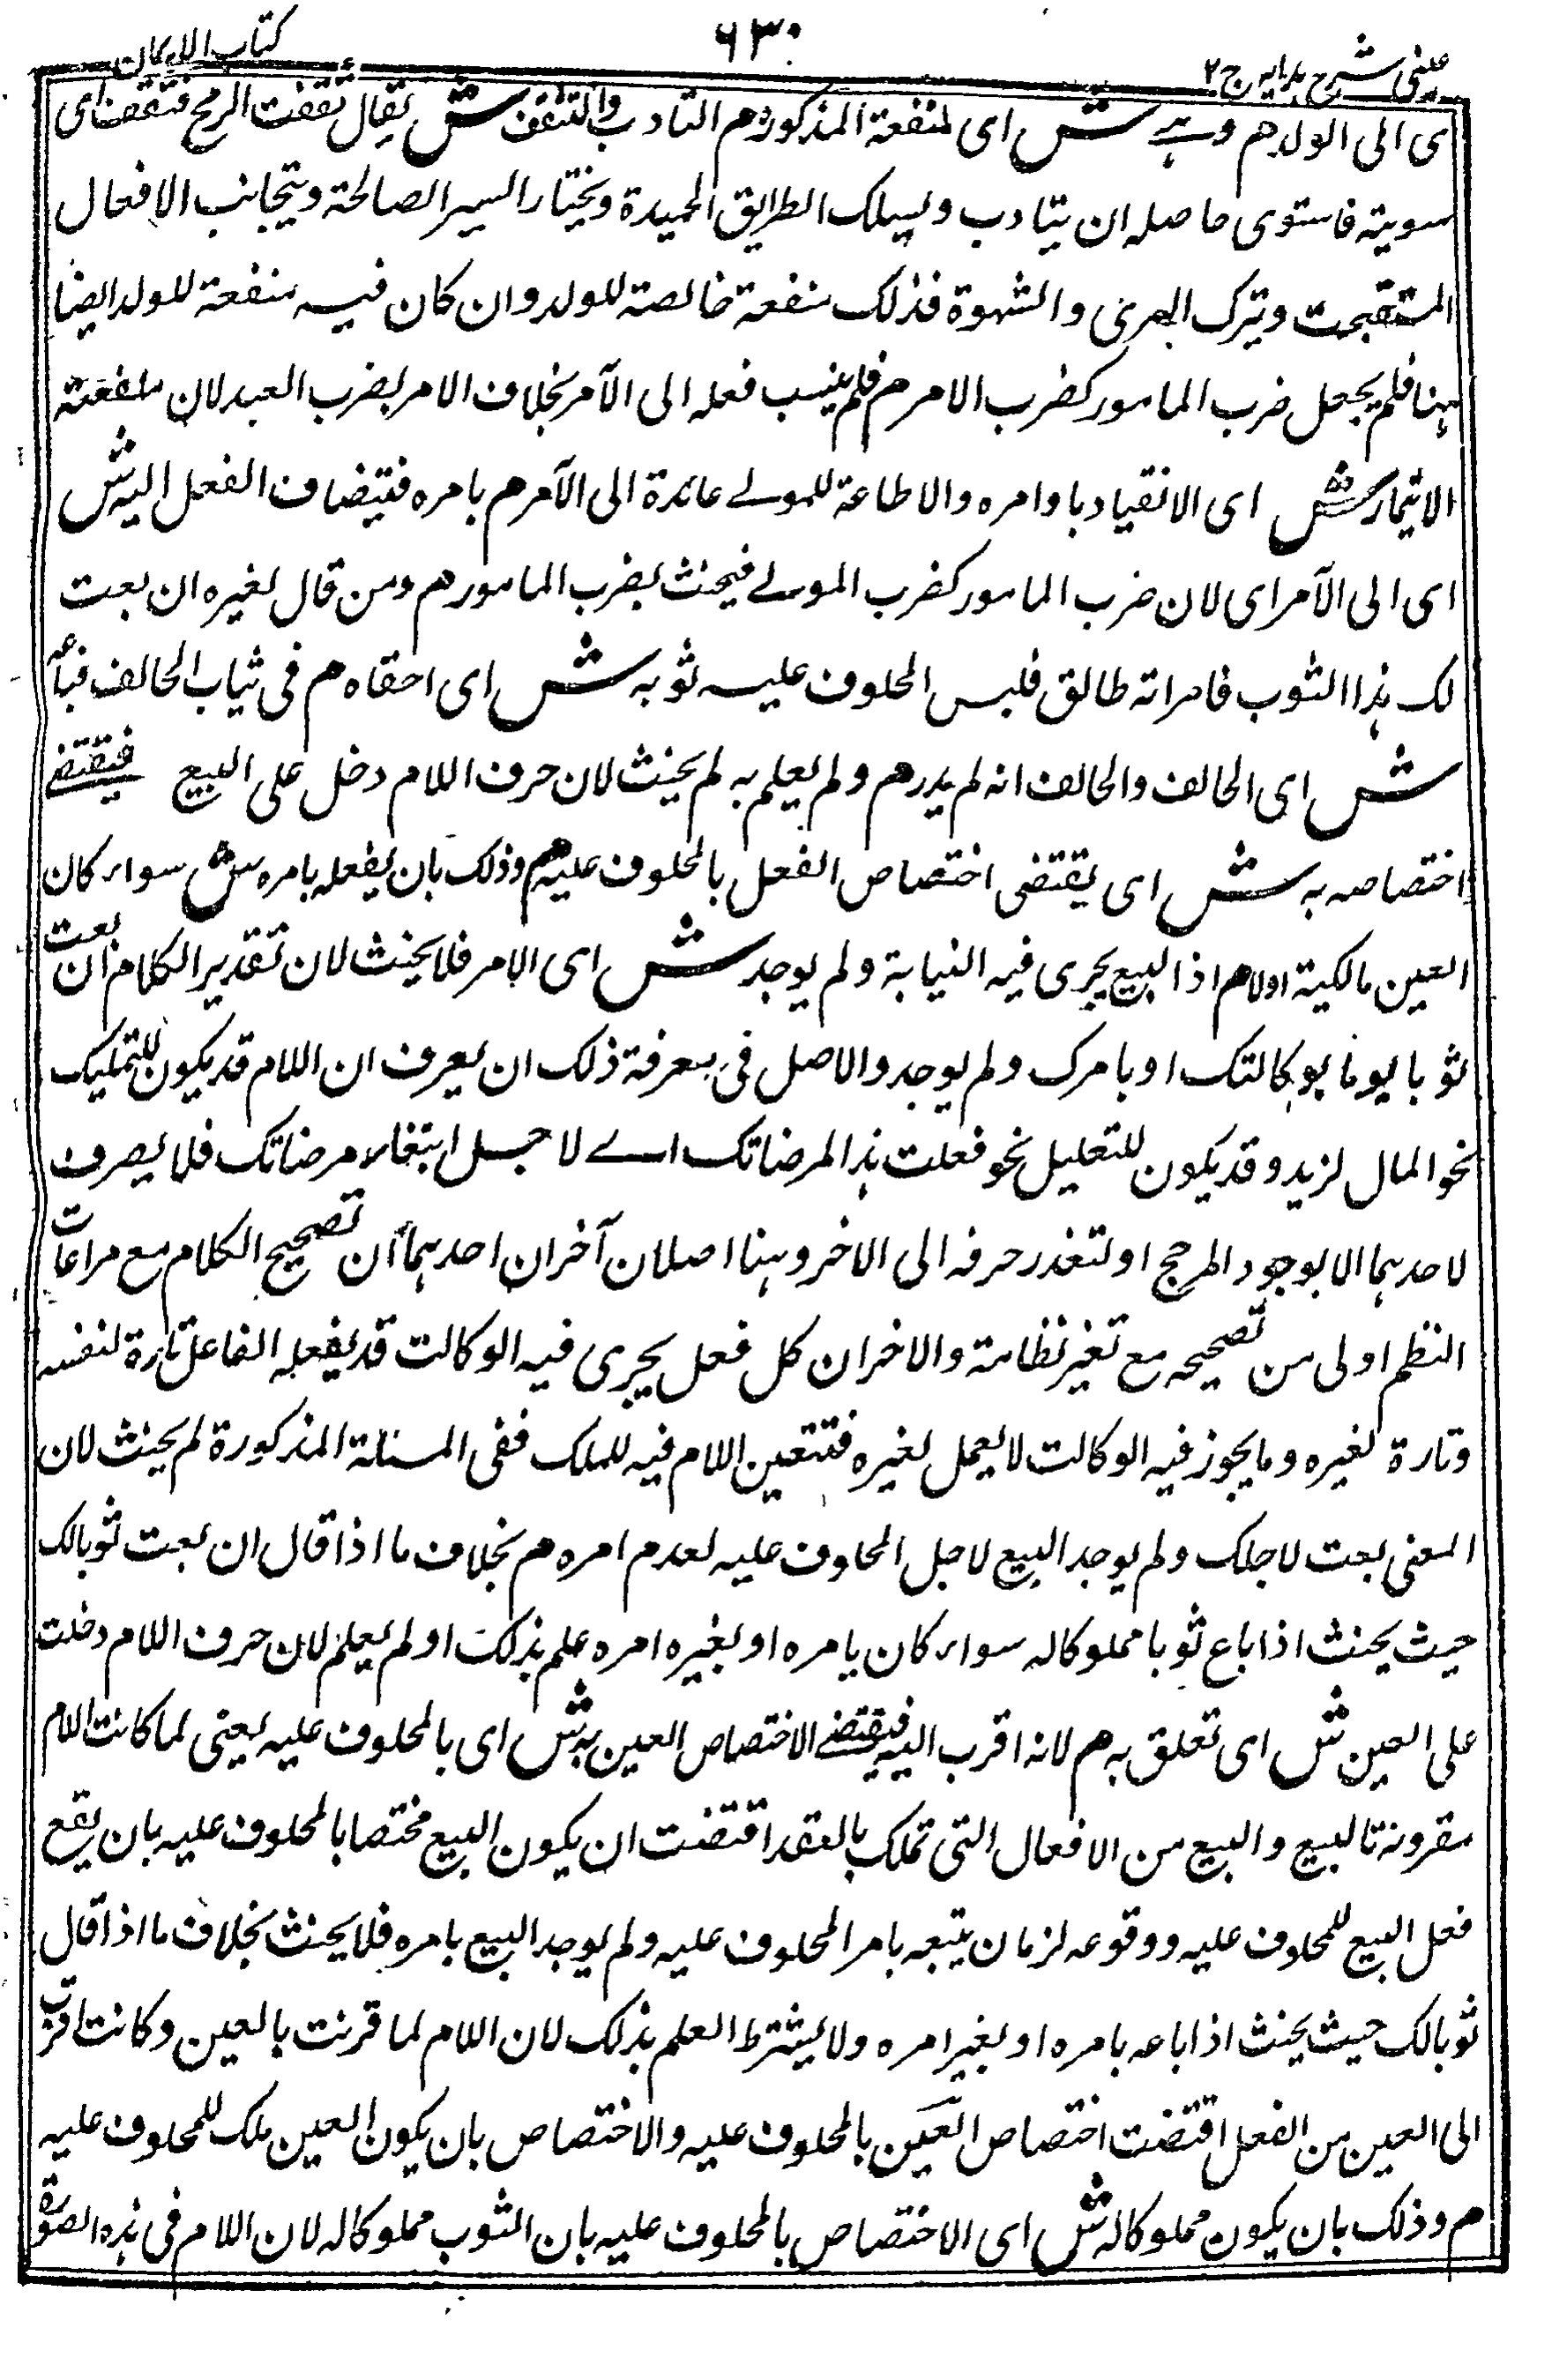 عینی شرح ہدایہ ج۲
۶۳۰
کتاب الایمان
ای الی الولد م وہے ش ای المنفعة المذکورة م التادب والتثقف ش یقال ثقفت الرمح فتثقف ای
سویتہ فاستوی حاصلہ ان یتادب ویسلک الطریق الحمیدة ویختار السیر الصالحة ویتجانب الافعال
المستقبحت ویترک الہوی والشہوة فذلک منفعة خالصة للولد وان کان فیہ منفعة للولد ایضا
ہنا فلم یجعل ضرب المامور کضرب الامر م فلم ینسب فعلہ الی الآمر بخلاف الامر بضرب العبد لان منفعتہ
الایتمار ش ای الانقیاد باوامرہ والاطاعة للمولے عائدة الی الآمر م بامرہ فیتضاف الفعل الیہ ش
ای الی الآمر ای لان ضرب المامور کضرب المولے فیحنث بضرب المامور م ومن قال لغیرہ ان بعت
لک ہذا الثوب فامراتہ طالق فلبس المحلوف علیہ ثوبہ ش ای اخفاہ م فی ثیاب الحالف فباعہ
ش ای الحالف والحالف انہ لم یدر م ولم یعلم بہ لم یحنث لان حرف اللام دخل علی البیع فیقتضے
اختصاصہ بہ ش ای یقتضی اختصاص الفعل بالمحلوف علیہ م وذلک بان یفعلہ بامرہ ش سواء کان
العین مالکیة اولا م اذ البیع یجری فیہ النیابة ولم یوجد ش ای الامر فلا یحنث لان تقدیر الکلام ان بعت
ثوبا یوما بوکالتک او بامرک ولم یوجد والاصل فی معرفة ذلک ان یعرف ان اللام قد یکون للتملیک
نحو المال لزید وقد یکون للتعلیل نحو فعلت ہذا لمرضاتک اے لاجل ابتغاء مرضاتک فلا یصرف
لاحدہما الا بوجود المرجح او لتعذر حرفہ الی الاخر وہنا اصلان آخران احدہما ان تصحیح الکلام مع مراعات
النظم اولی من تصحیحہ مع تغیر نظامہ والاخر ان کل فعل یجری فیہ الوکالت قد یفعلہ الفاعل تارة لنفسہ
وتارة لغیرہ وما یجوز فیہ الوکالت لا یعمل لغیرہ فتتعین اللام فیہ للملک ففی المسئلة المذکورة لم یحنث لان
المعنی بعت لاجلک ولم یوجد البیع لاجل المحلوف علیہ لعدم امرہ م بخلاف ما اذا قال ان بعت ثوبا لک
حیث یحنث اذا باع ثوبا مملوکا لہ سواء کان بامرہ او بغیرہ امرہ علم بذلک او لم یعلم لان حرف اللام دخلت
علی العین ش ای تعلق بہ م لانہ اقرب الیہ فیقتضے الاختصاص العین بہ ش ای بالمحلوف علیہ یعنی لما کانت اللام
مقرونة بالبیع والبیع من الافعال التی تملک بالعقد اقتضت ان یکون البیع مختصا بالمحلوف علیہ بان یقع
فعل البیع للمحلوف علیہ ووقوعہ لزمان یتبعہ بامر المحلوف علیہ ولم یوجد البیع بامرہ فلا یحنث بخلاف ما اذا قال
ثوبا لک حیث یحنث اذا باعہ بامرہ او بغیر امرہ ولا یشترط العلم بذلک لان اللام لما قرنت بالعین وکانت اقرب
الی العین من الفعل اقتضت اختصاص العین بالمحلوف علیہ والاختصاص بان یکون العین ملک للمحلوف علیہ
م وذلک بان یکون مملوکا لہ ش ای الاختصاص بالمحلوف علیہ بان الثوب مملوکا لہ لان اللام فی ہذہ الصورة